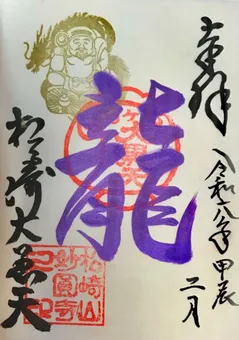 奉拝
令和六年 甲辰
二月
龍
松崎大黒天
松崎山
妙圓寺
之印